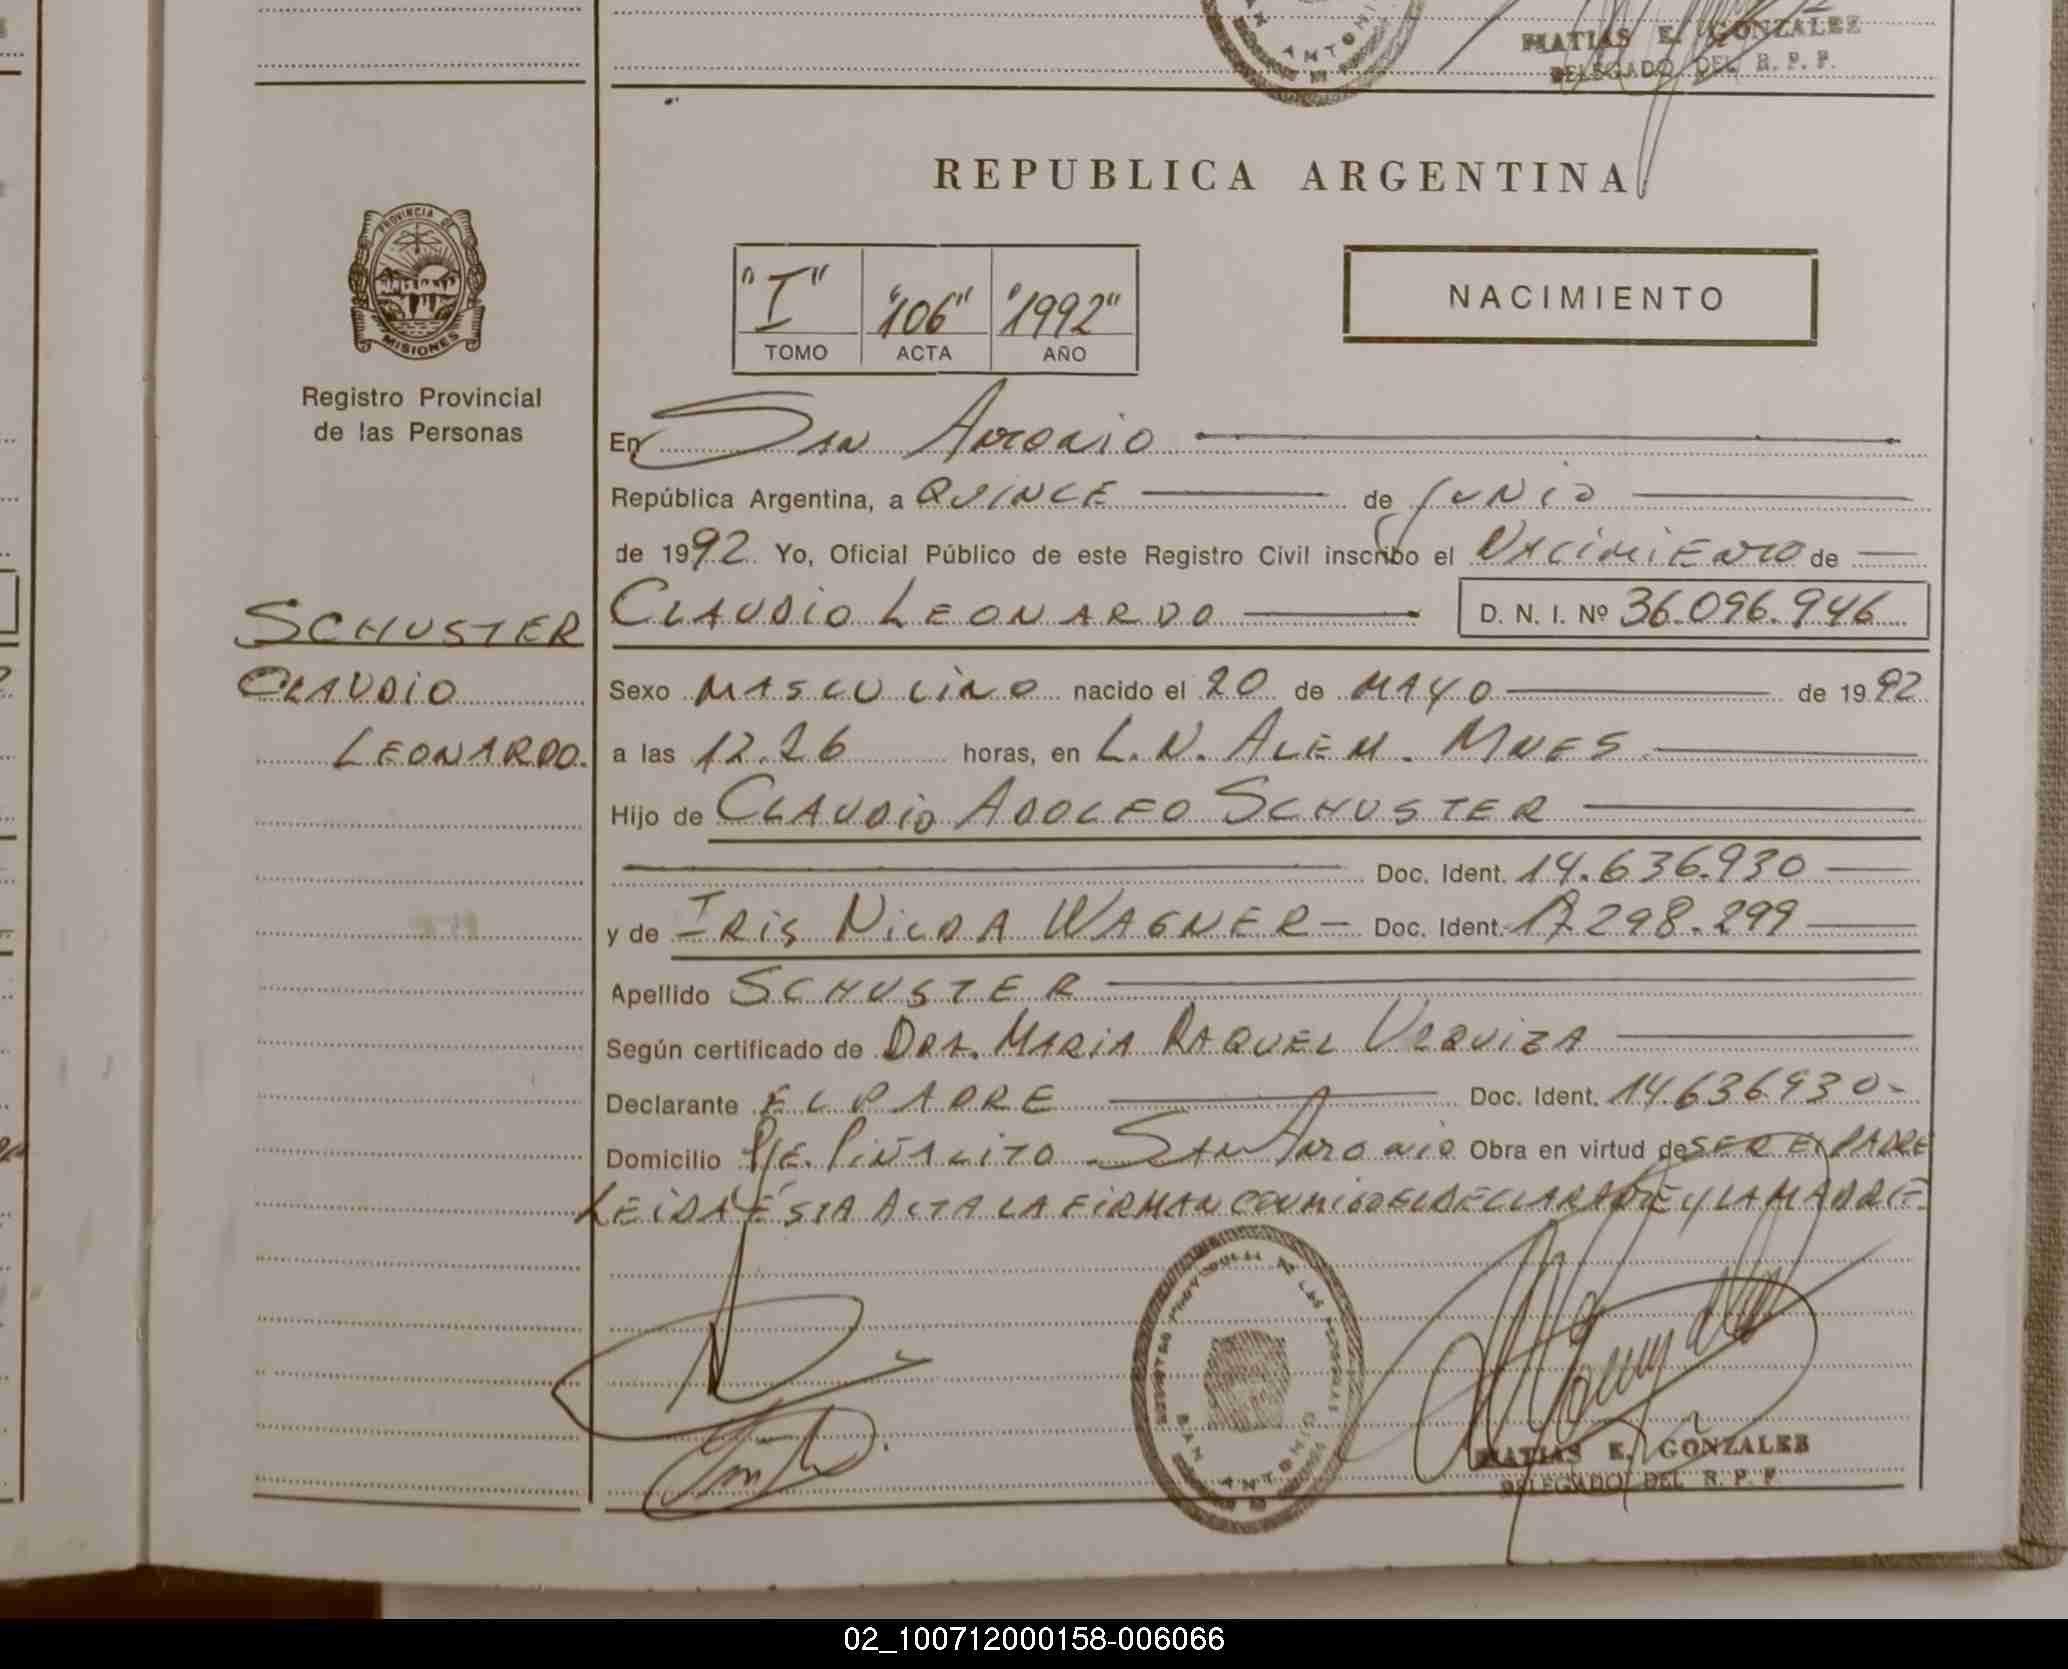 MATIAS E. GONZALEZ
DELEGADO DEL R. P. P.
REPUBLICA ARGENTINA
PROVINCIA DE
MISIONES
Registro Provincial
de las Personas
"I" "106" "1992"
TOMO ACTA AÑO
NACIMIENTO
En San Antonio
República Argentina, a QUINCE de Junio
de 1992. Yo, Oficial Público de este Registro Civil inscribo el NACIMIENTO de
SCHUSTER
CLAUDIO
LEONARDO.
CLAUDIO LEONARDO D. N. I. Nº 36.096.946
Sexo MASCULINO nacido el 20 de MAYO de 1992
a las 12.26 horas, en L.N. ALEM. MNES
Hijo de CLAUDIO ADOLFO SCHUSTER
Doc. Ident. 14.636.930
y de IRIS NILDA WAGNER- Doc. Ident. 17.298.299
Apellido SCHUSTER
Según certificado de DRA. MARIA RAQUEL URQUIZA
Declarante EL PADRE Doc. Ident. 14.636930-
Domicilio PJE. PIÑALITO - SAN ANTONIO Obra en virtud de SER EL PADRE
LEIDA ÉSTA ACTA LA FIRMAN CONMIGO EL DECLARANTE Y LA MADRE
REGISTRO PROVINCIAL DE LAS PERSONAS
SAN ANTONIO
MATIAS E. GONZALEZ
DELEGADO DEL R. P. P.
02_100712000158-006066